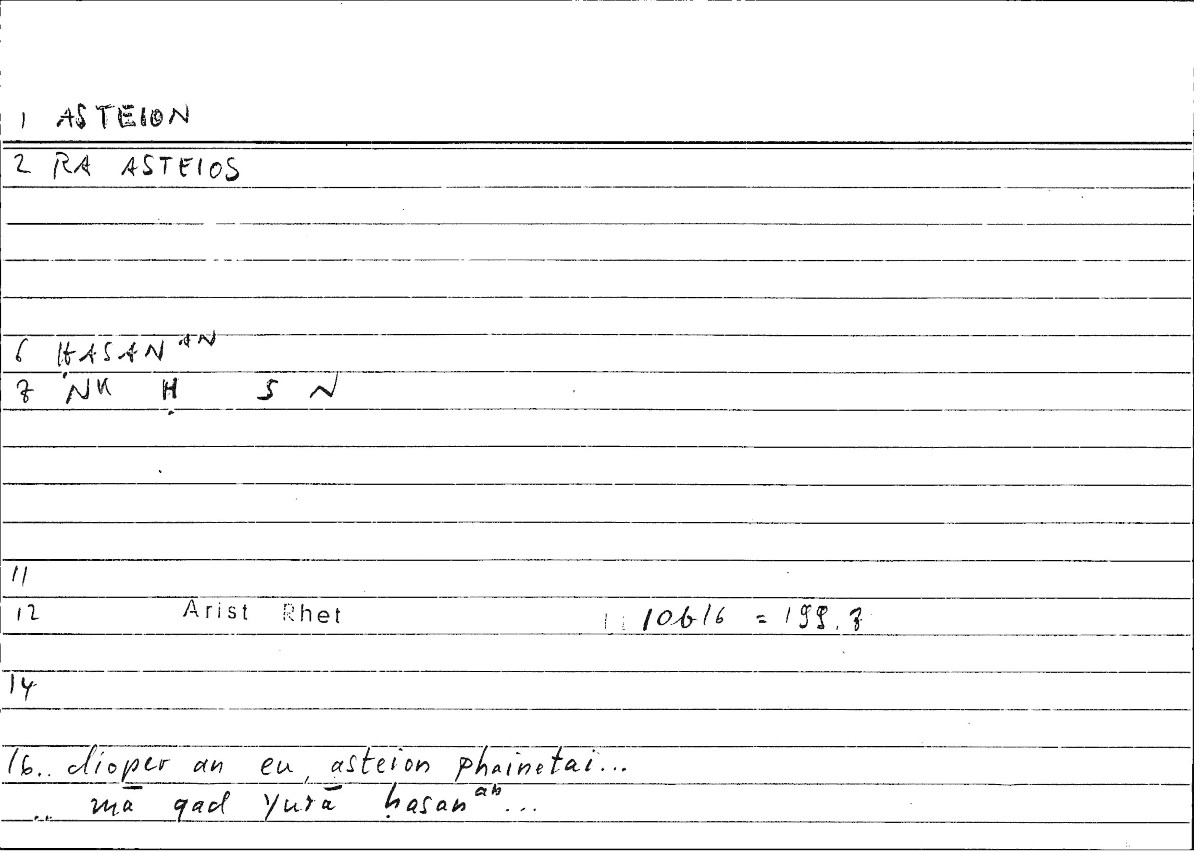 1 ASTEION
2 RA ASTEIOS
6 ḤASAN^AN
7 NK Ḥ S N
11
12 Arist Rhet 10b16 = 199.7
14
16.. dioper an eu, asteion phainetai...
.. mā qad yurā ḥasan^an...